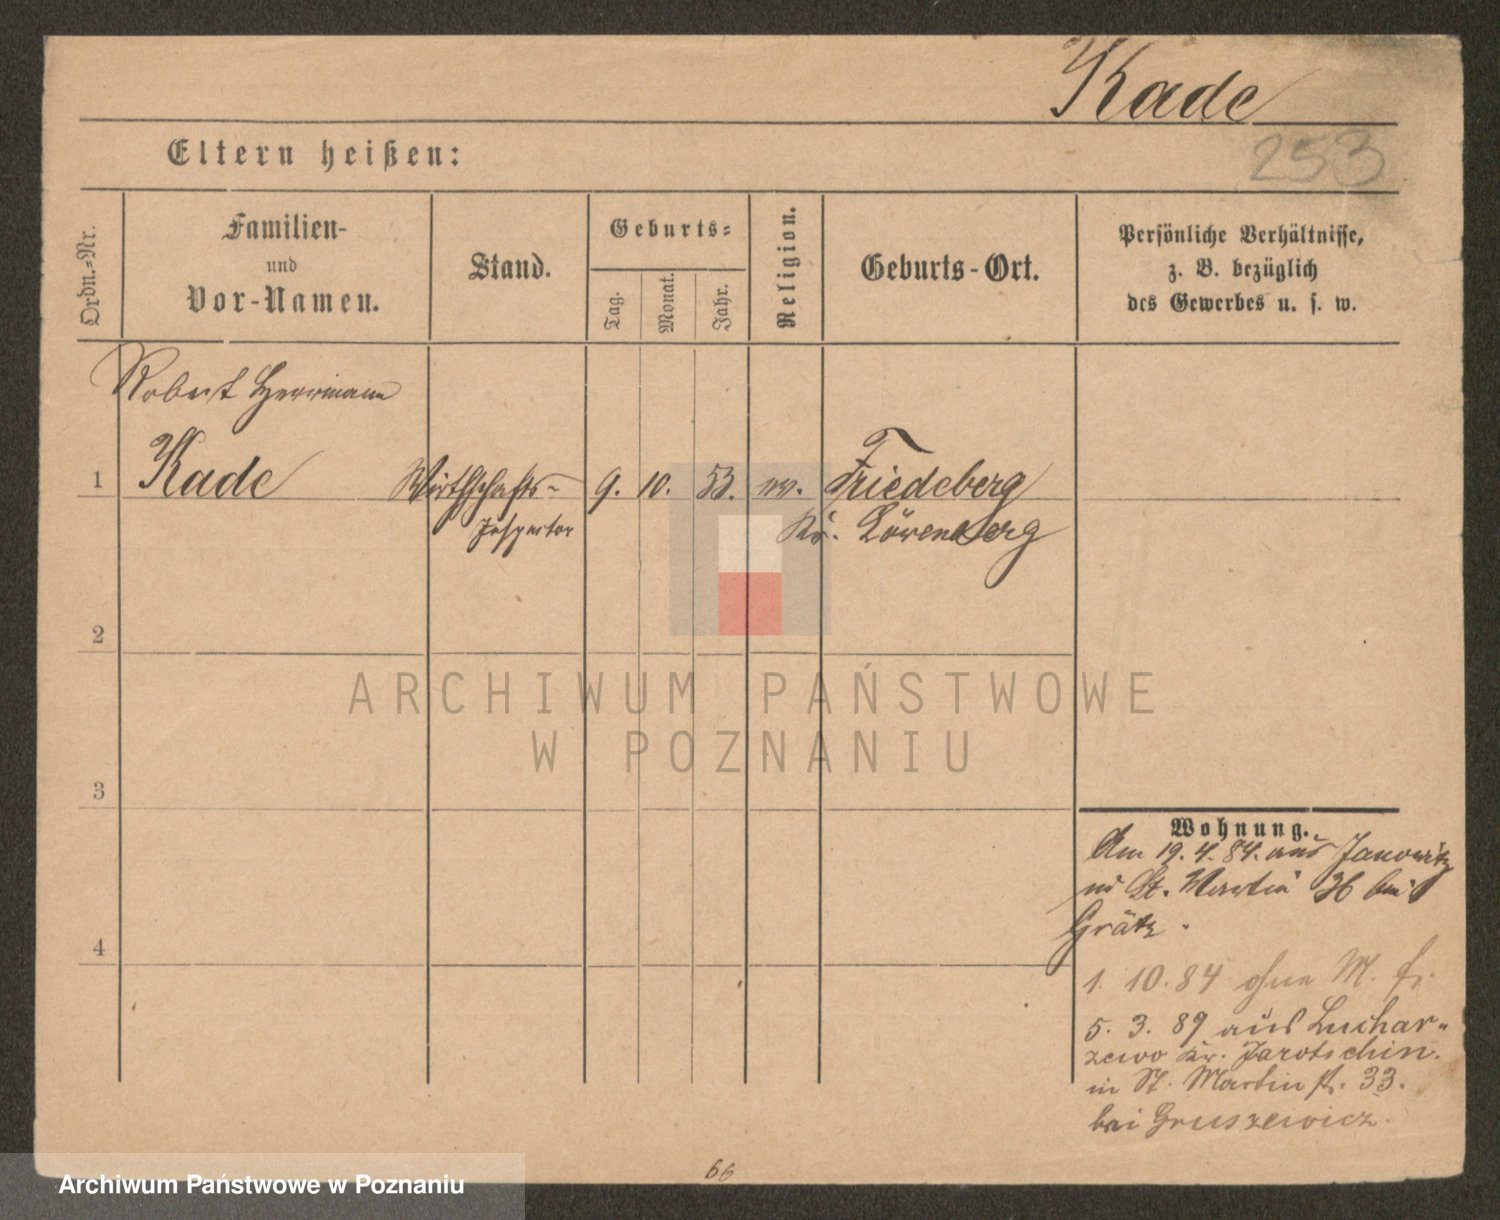 Kade
253
Eltern heißen:
Ordn.-Nr.
Familien-
und
Vor-Namen.
Stand.
Geburts-
Tag.
Monat.
Jahr.
Religion.
Geburts-Ort.
Persönliche Verhältnisse,
z. B. bezüglich
des Gewerbes u. s. w.
Robert Herrmann
1 Kade Wirthschafts- 9. 10. 53. ev. Friedeberg
Inspector Kr. Löwenberg
2
ARCHIWUM PAŃSTWOWE
W POZNANIU
3
4
Wohnung.
Am 19. 4. 84. aus Janowitz
in St. Martin 36 bei
Grätz.
1. 10. 84 ohne M. fr.
5. 3. 89 aus Luchar-
zewo Kr. Jarotschin.
in St. Martin st. 33.
bei Gruszewicz.
66
Archiwum Państwowe w Poznaniu